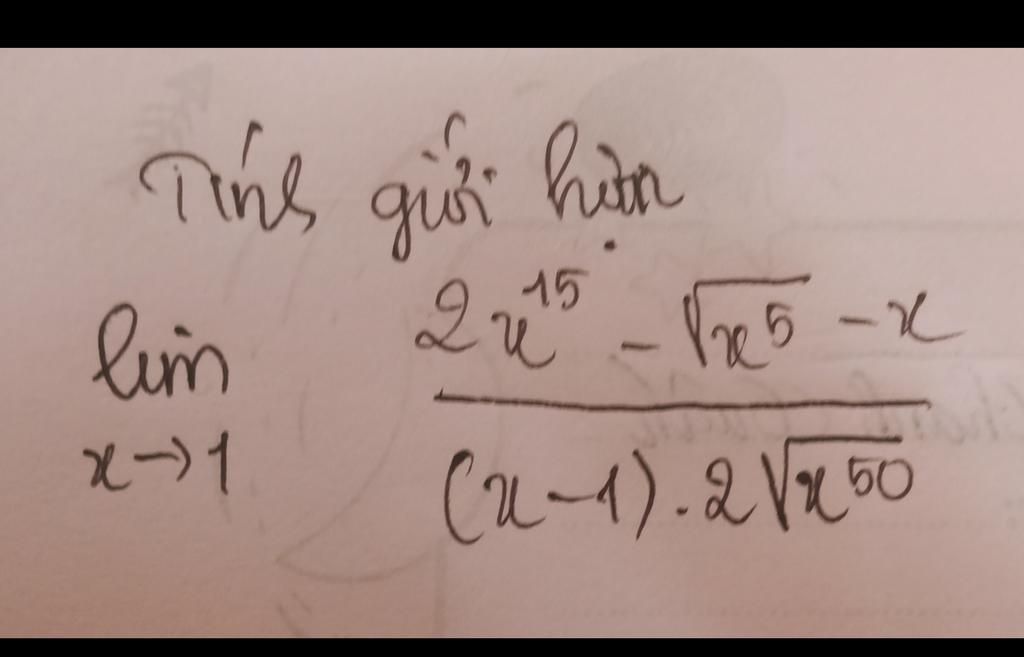 Tính giới hạn
lim x→1 (2x^15 - √(x^5) - x) / ((x-1).2√(x^50))